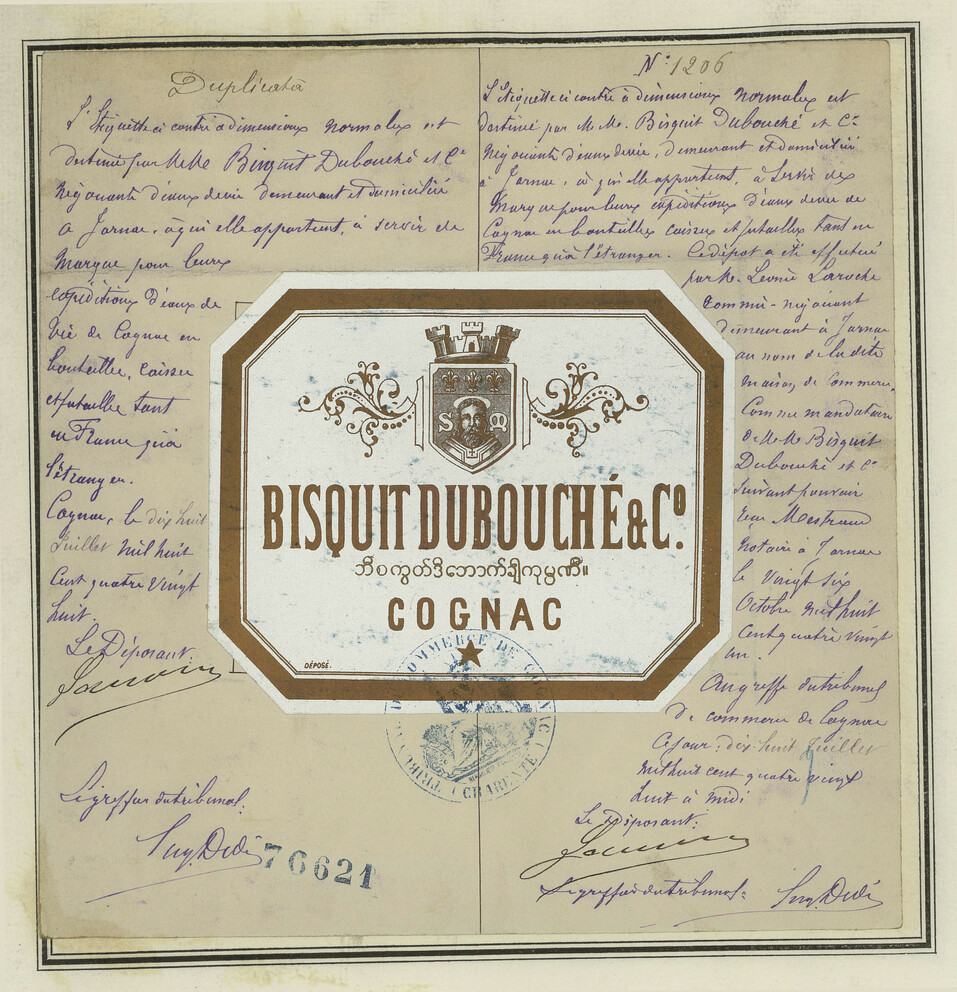 Duplicata
L'étiquette ci contre a dimensions normales est
destinée par MM. Bisquit Dubouché et Cie
négociants d'eaux de vie demeurant et domiciliés
à Jarnac, à qui elle appartient, à servir de
marque pour leurs
expéditions d'eaux de
vie de Cognac en
bouteilles, caisses
et futailles tant
en France qu'à
l'étranger.
Cognac, le dix huit
Juillet mil huit
cent quatre vingt
huit.
Le Déposant.
Le greffier du tribunal:
76621
No: 1206
L'étiquette ci contre à dimensions normales est
destinée par M.M. Bisquit Dubouché et Cie
négociants d'eaux de vie, demeurant et domiciliés
à Jarnac, à qui elle appartient, à servir de
marque pour leurs expéditions d'eaux de vie de
Cognac en bouteilles caisses et futailles tant en
France qu'à l'étranger. Ce dépôt a été effectué
par M. Léonie Laroche
commis-négociant
demeurant à Jarnac
au nom de la dite
maison de commerce,
comme mandataire
de MM Bisquit
Dubouché et Cie
suivant pouvoir
notaire à Jarnac
le vingt six
Octobre mil huit
cent quatre vingt
un.
Au greffe du tribunal
de commerce de Cognac
Ce jour: dix huit Juillet
mil huit cent quatre vingt
huit à midi
Le Déposant:
Le greffier du tribunal:
S M
BISQUIT DUBOUCHÉ & Co.
ဘီစကွတ်ဒီဘောက်ချီကုမ္ပဏီ။
COGNAC
DÉPOSÉ.
TRIBUNAL DE COMMERCE DE COGNAC (CHARENTE)